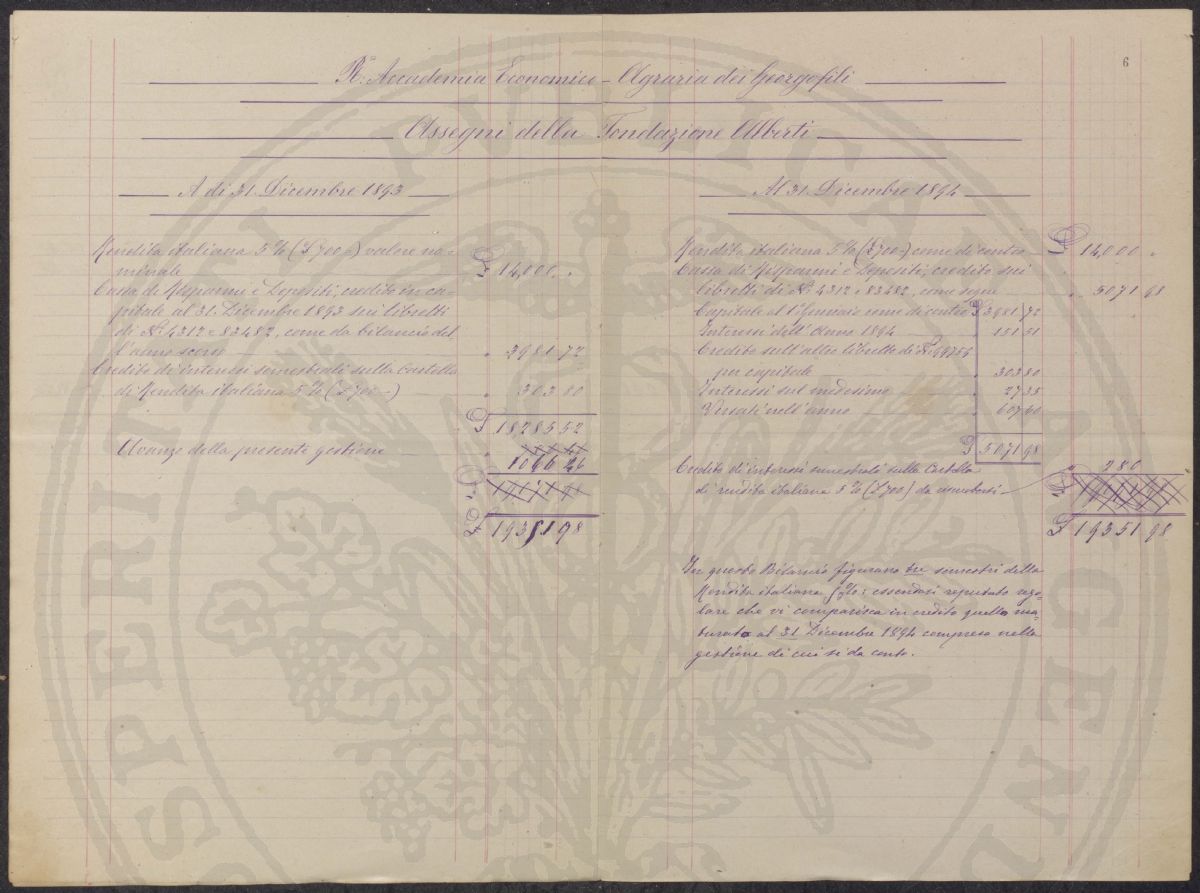 6
R.a Accademia Economico-Agraria dei Georgofili
Assegni della Fondazione Alberti
A dì 31 Dicembre 1893
Rendita italiana 5% (£ 700-) valore no-
minale £ 14,000 "
Cassa di Risparmi e Depositi, credito in ca-
pitale al 31. Dicembre 1893 sui libretti
di N.i 4312 e 83482, come da bilancio del-
l'anno scorso " 3981 72
Credito di interessi semestrali sulla Cartella
di Rendita italiana 5% (£ 700-) " 303 80
£ 18285 52
Avanzo della presente gestione " 1066 26
£ 19351 98
Al 31. Dicembre 1894
Rendita italiana 5% (£ 700-) come di contro £ 14,000 "
Cassa di Risparmi e Depositi, credito sui
libretti di N.i 4312 e 83482, come segue " 5071 98
Capitale al 1° Gennaio come di contro £ 3981,72
Interessi dell'Anno 1894 " 151 51
Credito sull'altro libretto di N.
per capitale " 303 80
Interessi sul medesimo " 27 35
Versati nell'anno " 607 60
£ 5071 98
Credito di interessi semestrali sulla Cartella " 280
di rendita italiana 5% (£ 700) da
£ 19351 98
In questo Bilancio figurano tre semestri della
Rendita italiana 5%: essendosi reputato rego-
lare che vi comparisca in credito quello ma-
turato al 31 Dicembre 1894 compreso nella
gestione di cui si da conto.
PVBLICAE
SPERITATI
AVGENDAE